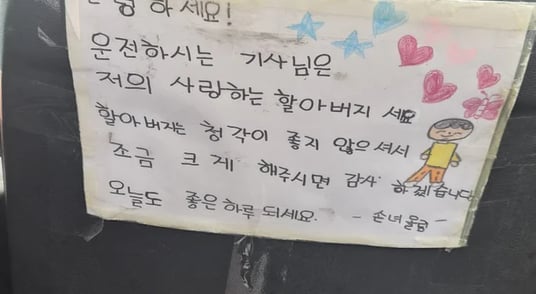 녕 하세요!
운전하시는 기사님은
저의 사랑하는 할아버지 세요
할아버지는 청각이 좋지 않으셔서
조금 크게 해주시면 감사 하겠습니다
오늘도 좋은 하루 되세요. - 손녀 올림 -